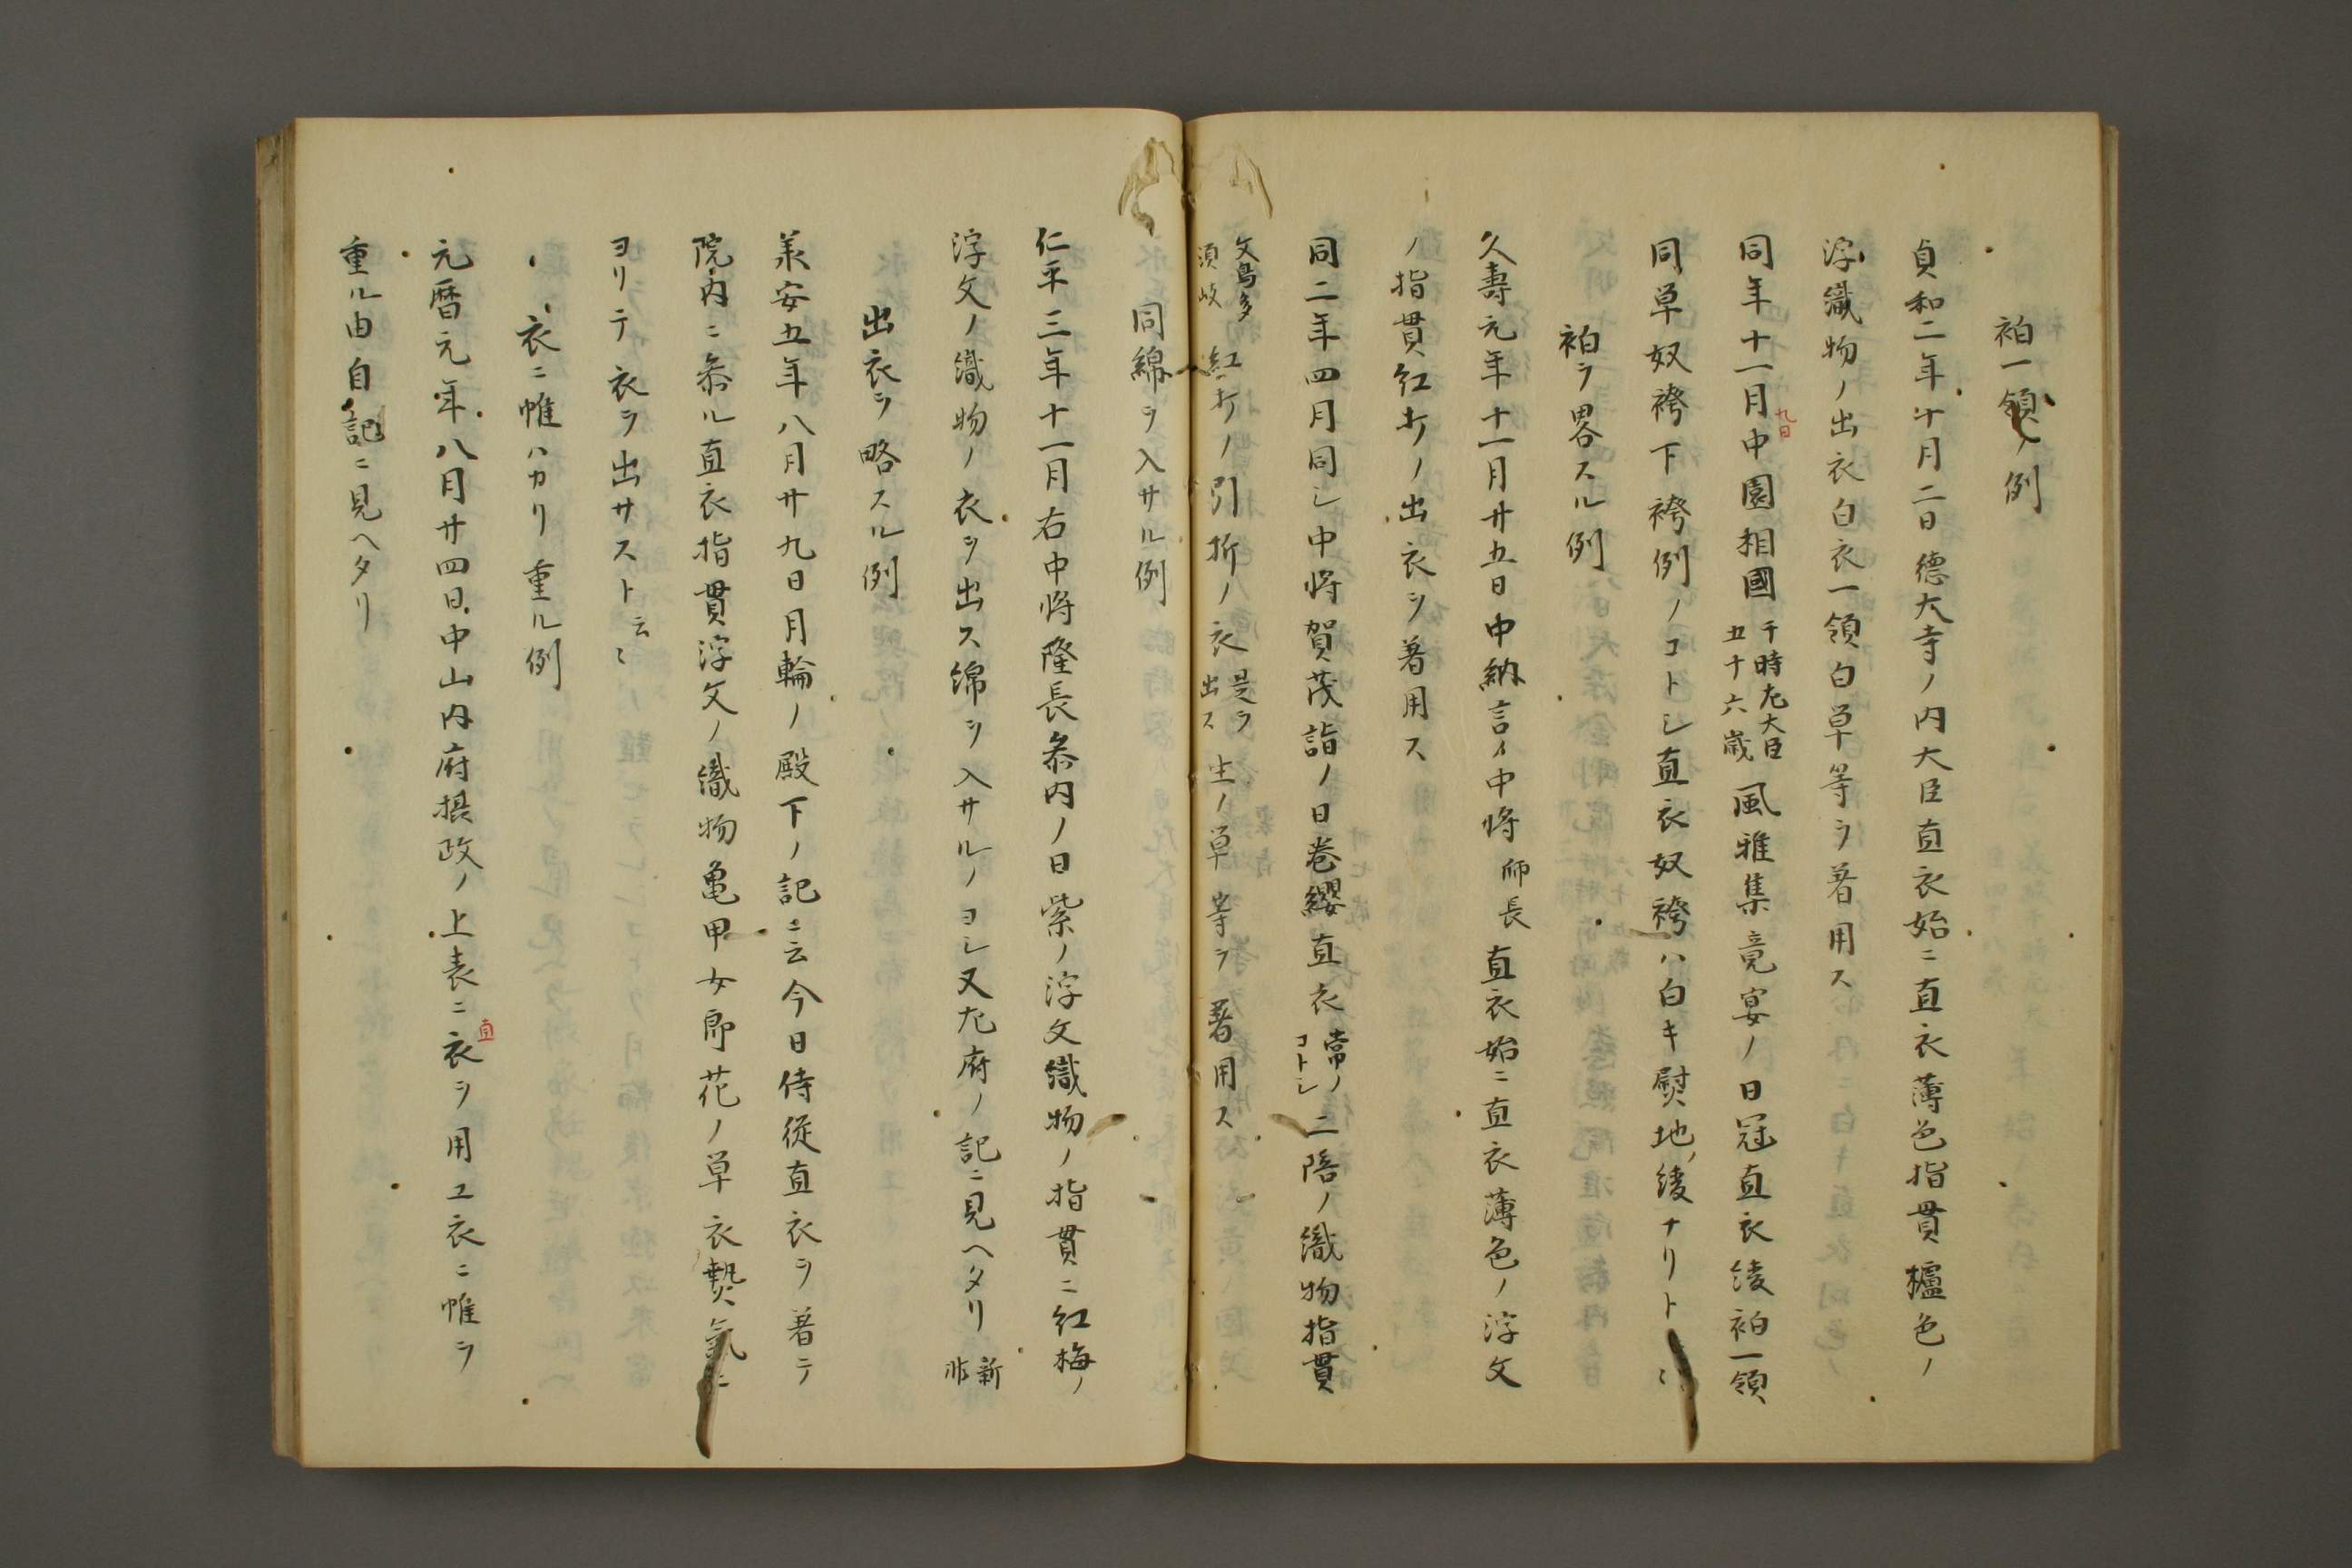 袙一領ノ例
貞和二年十月二日德大寺ノ内大臣直衣始ニ直衣薄色指貫櫨色ノ
浮織物ノ出衣白衣一領白單等ヲ著用ス
同年十一月九日中園相國于時左大臣五十六歳風雅集竟宴ノ日冠直衣綾袙一領
同單奴袴下袴例ノコトシ直衣奴袴ハ白キ熨地ノ綾ナリト
袙ヲ畧スル例
久壽元年十一月廿五日中納言ノ中將師長直衣始ニ直衣薄色ノ浮文
ノ指貫紅打ノ出衣ヲ著用ス
同二年四月同シ中將賀茂詣ノ日巻纓直衣常ノコトシ二陪ノ織物指貫
文鳥多須岐紅打ノ引折ノ衣是ヲ出ス生ノ單等ヲ著用ス
同綿ヲ入サル例
仁平三年十一月右中將隆長叅内ノ日紫ノ浮文織物ノ指貫ニ紅梅ノ
浮文ノ織物ノ衣ヲ出ス綿ヲ入サルノヨシ又左府ノ記ニ見ヘタリ新非
出衣ヲ略スル例
承安五年八月廿九日月輪ノ殿下ノ記ニ云今日侍從直衣ヲ著テ
院内ニ叅ル直衣指貫浮文ノ織物亀甲女郎花ノ單衣熱氣ニ
ヨリテ衣ヲ出サスト云〻
衣ニ帷ハカリ重ル例
元暦元年八月廿四日中山内府摂政ノ上表ニ直衣ヲ用ユ衣ニ帷ヲ
重ル由自記ニ見ヘタリ